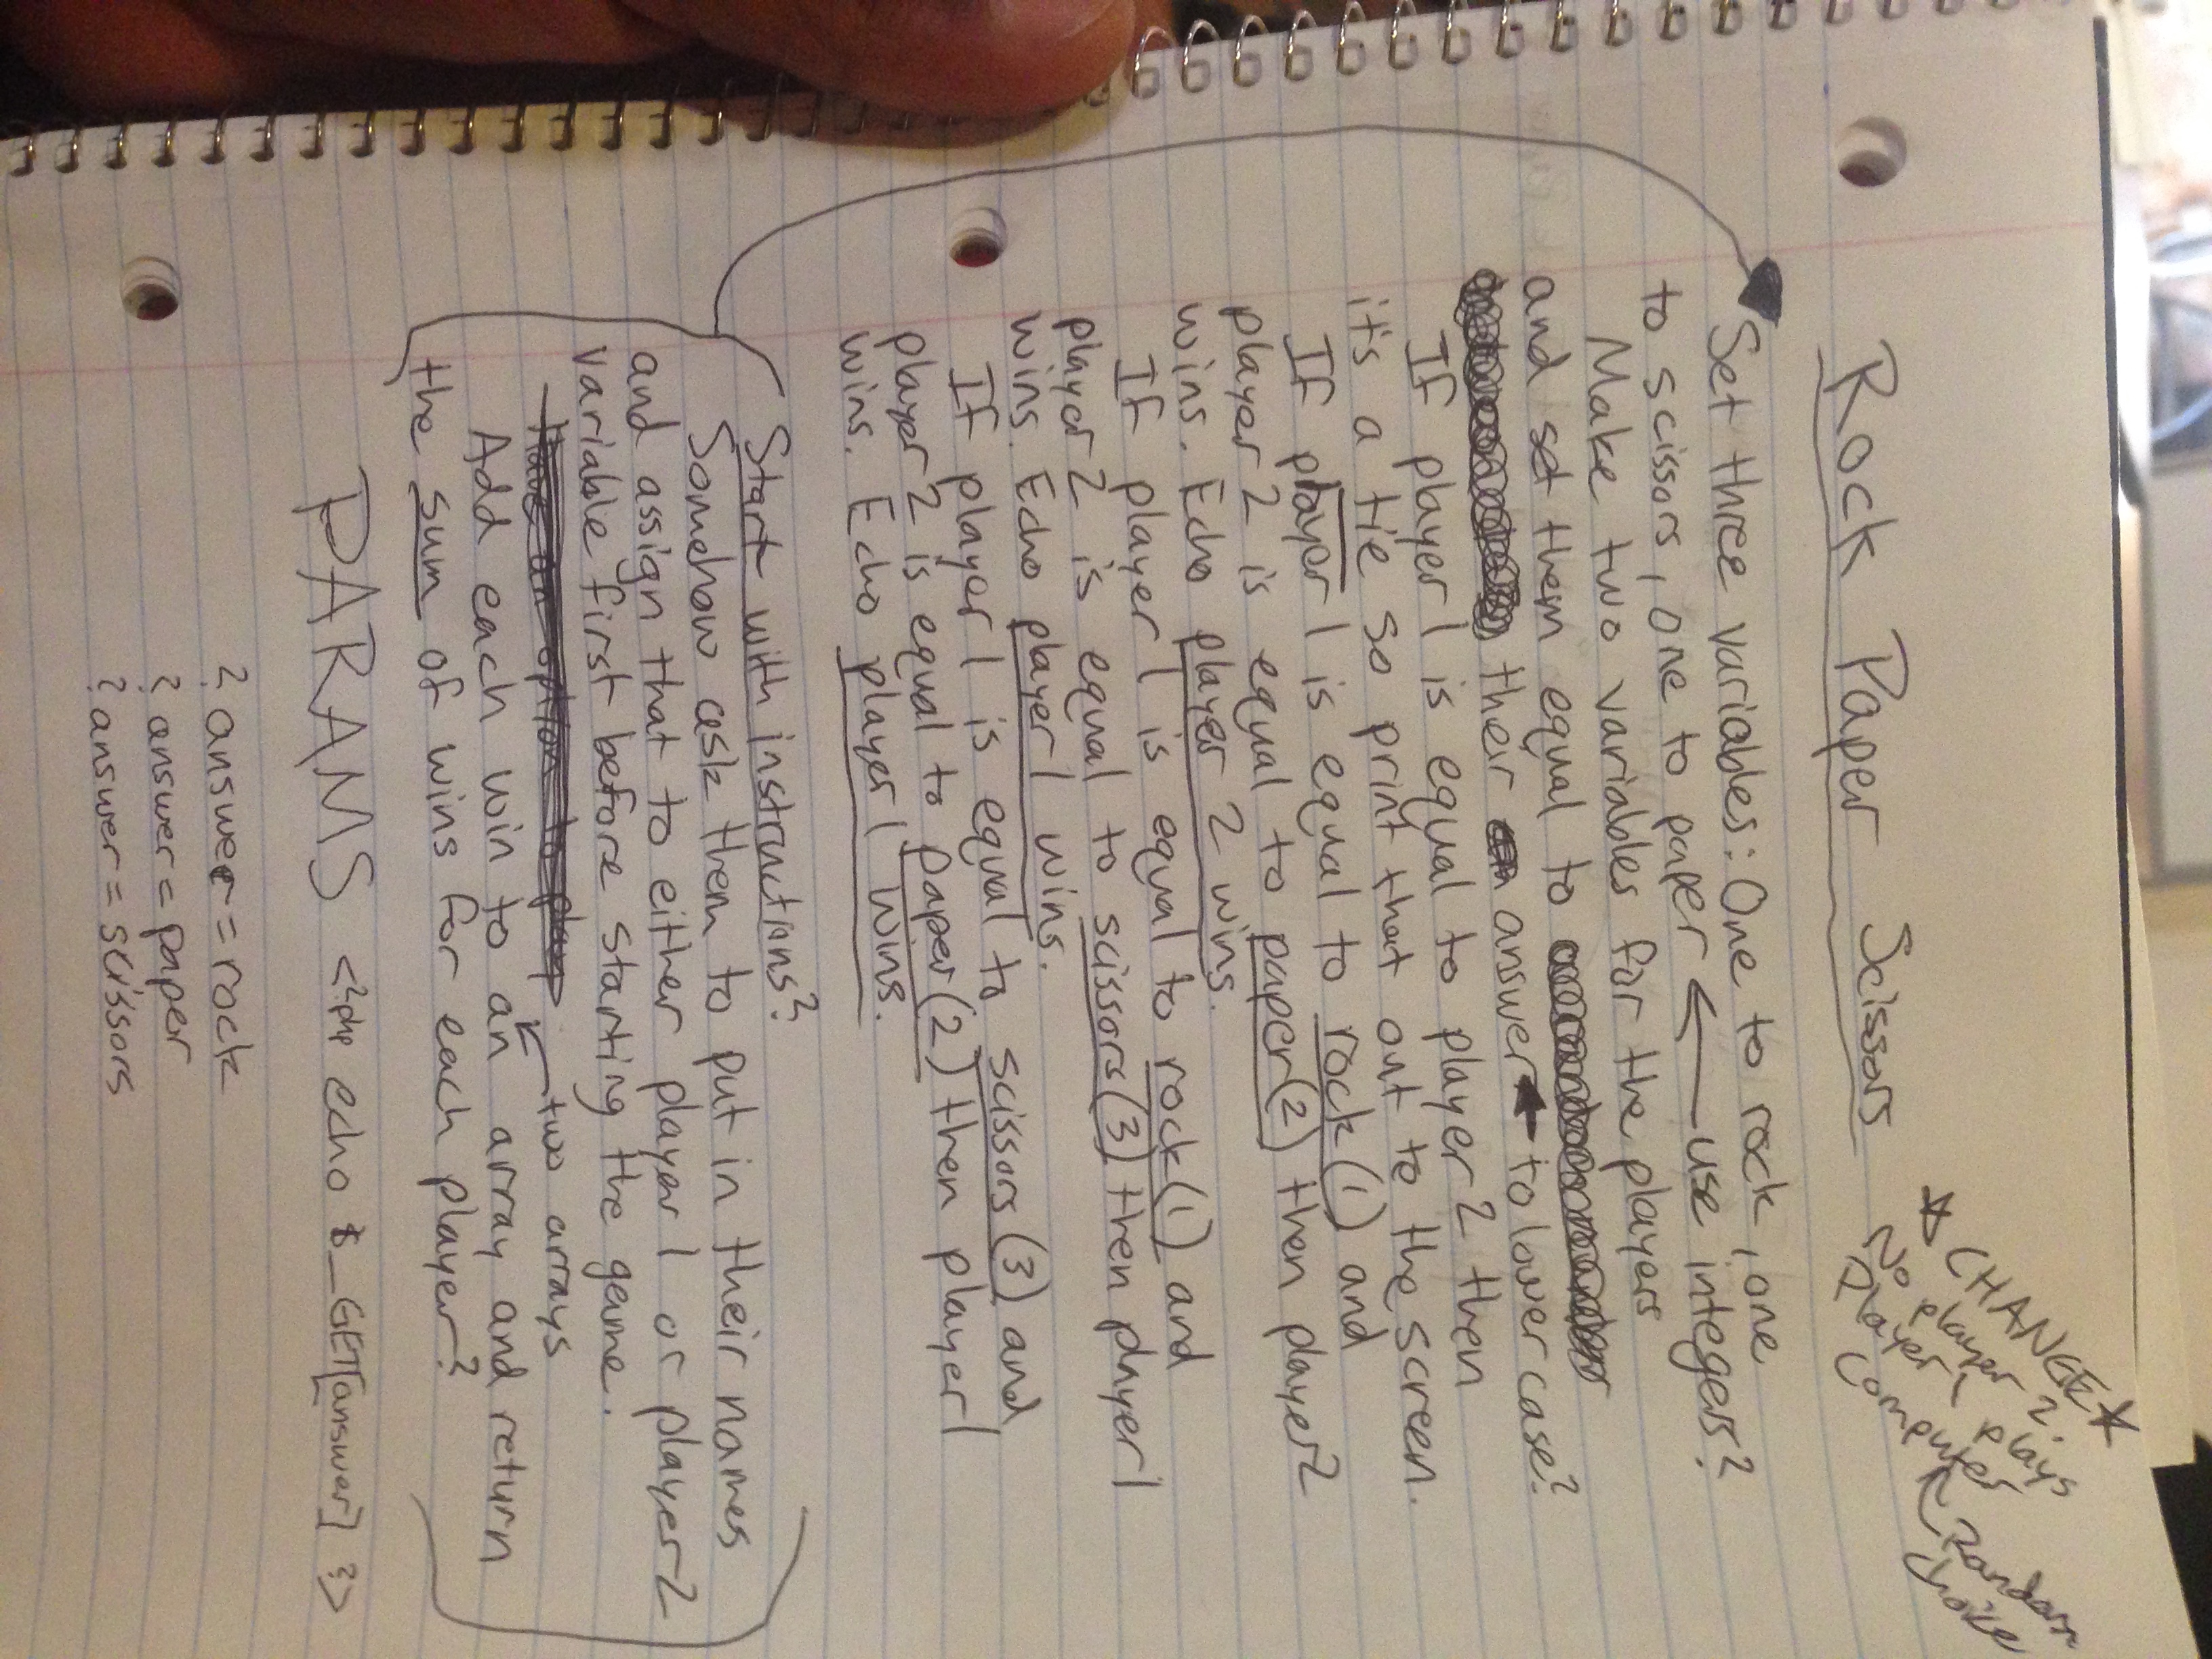 Rock Paper Scissors
*CHANGE*
No player 2.
Player plays
computer ← random
choice
Set three variables: One to rock, one
to scissors, one to paper ← use integers?
Make two variables for the players
and set them equal to
their answer ← to lower case?
If player 1 is equal to player 2 then
it's a tie so print that out to the screen.
If player 1 is equal to rock (1) and
player 2 is equal to paper (2) then player 2
wins. Echo player 2 wins.
If player 1 is equal to rock (1) and
player 2 is equal to scissors (3) then player 1
wins. Echo player 1 wins.
If player 1 is equal to scissors (3) and
player 2 is equal to paper (2) then player 1
wins. Echo player 1 wins.
Start with instructions?
Somehow ask them to put in their names
and assign that to either player 1 or player 2
variable first before starting the game.
Have an option to play
two arrays
Add each win to an array and return
the sum of wins for each player?
PARAMS <?php echo $_GET[answer] ?>
? answer = rock
? answer = paper
? answer = scissors